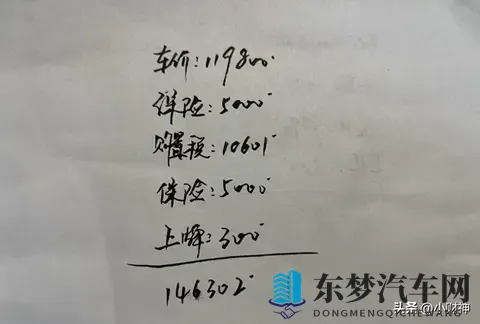 车价:119800
保险:5000
购置税:10601
保险:5000
上牌:300
146302
东梦汽车网
DONGMENGQICHEWANG
头条 @小叮财神